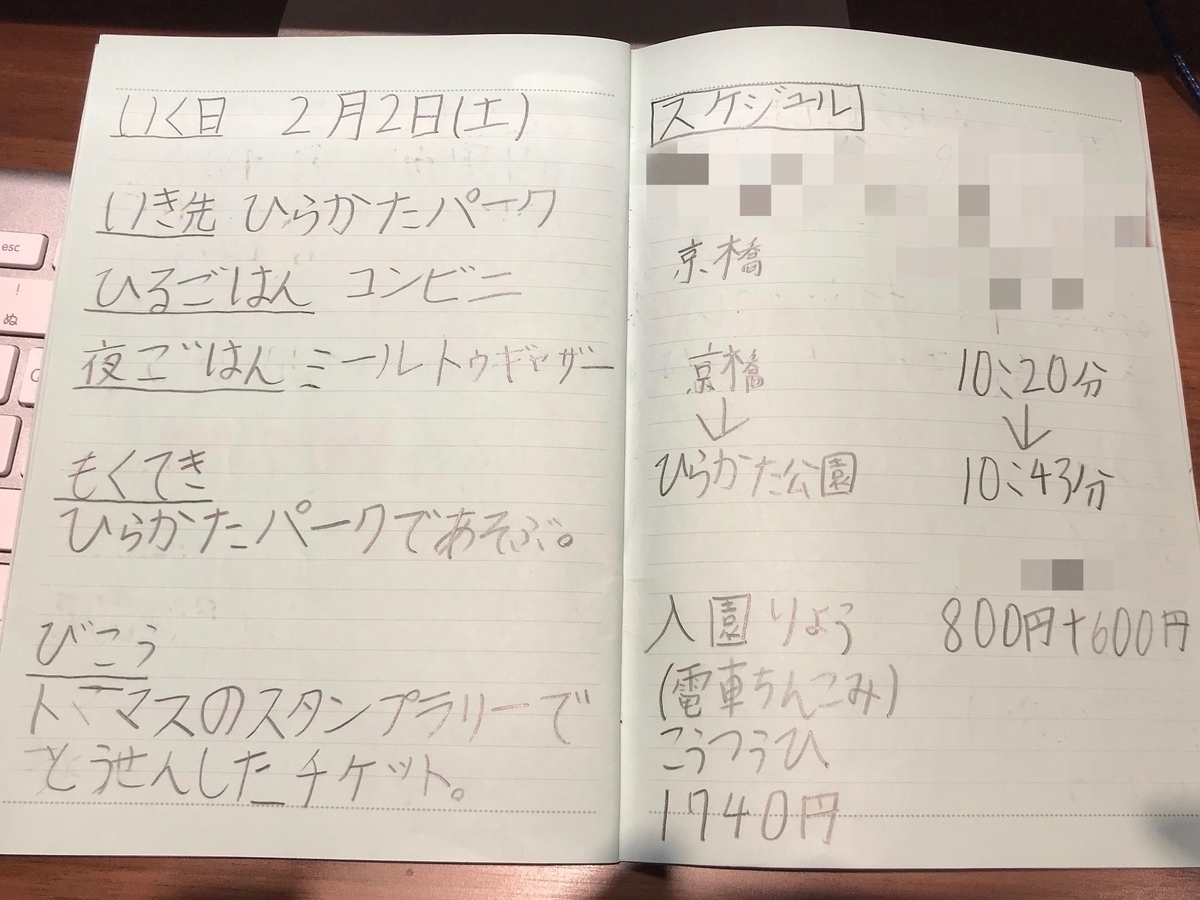 いく日 2月2日(土)
いき先 ひらかたパーク
ひるごはん コンビニ
夜ごはん ミールトゥギャザー
もくてき
ひらかたパークであそぶ。
びこう
トーマスのスタンプラリーで
とうせんしたチケット。
スケジュール
京橋
京橋 10:20分
↓ ↓
ひらかた公園 10:43分
入園りょう 800円+600円
(電車ちんこみ)
こうつうひ
1740円
esc
!
ぬ